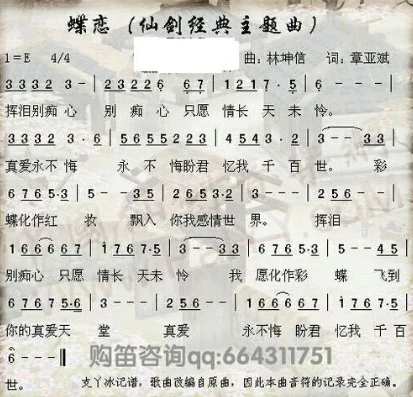 蝶恋（仙剑经典主题曲）
1=E 4/4 曲：林坤信 词：章亚斌
3 3 3 2 3 - | 2 3 2 2 6 6 7 | 1 2 1 7·5 | 6 - - - |
挥泪别痴心 别 痴 心 只愿 情长 天未 怜。
3 3 3 2 3·6 | 5 6 5 5 5 2 3 | 4 5 4 3·2 | 3 - - 3 3 |
真爱永不悔 永 不 悔盼君 忆我 千 百 世。 彩
6 7 6 5·3 | 5 - - 3 5 | 6 7 6 5 6·2 | 3 - - - | 2 5 6 - - |
蝶化作红 妆 飘入 你我感情世 界。 挥泪
1 6 6 6 6 7 | 1 7 6 7·5 | 3 - - 3 | 6 7 6 5·3 | 5 - - 4 5 |
别痴心 只愿 情长 天未 怜 我 愿化作彩 蝶 飞到
6 7 6 7 5·6 | 3 - - - | 1 2 6 - - | 1 6 6 6 6 7 | 1 7 6 7·5 |
你的真爱天 堂 真爱 永不悔 盼君 忆我 千 百
6 - - - ‖
世。 支丫冰记谱，歌曲改编自原曲，因此本曲音符的记录完全正确。
购笛咨询qq:664311751